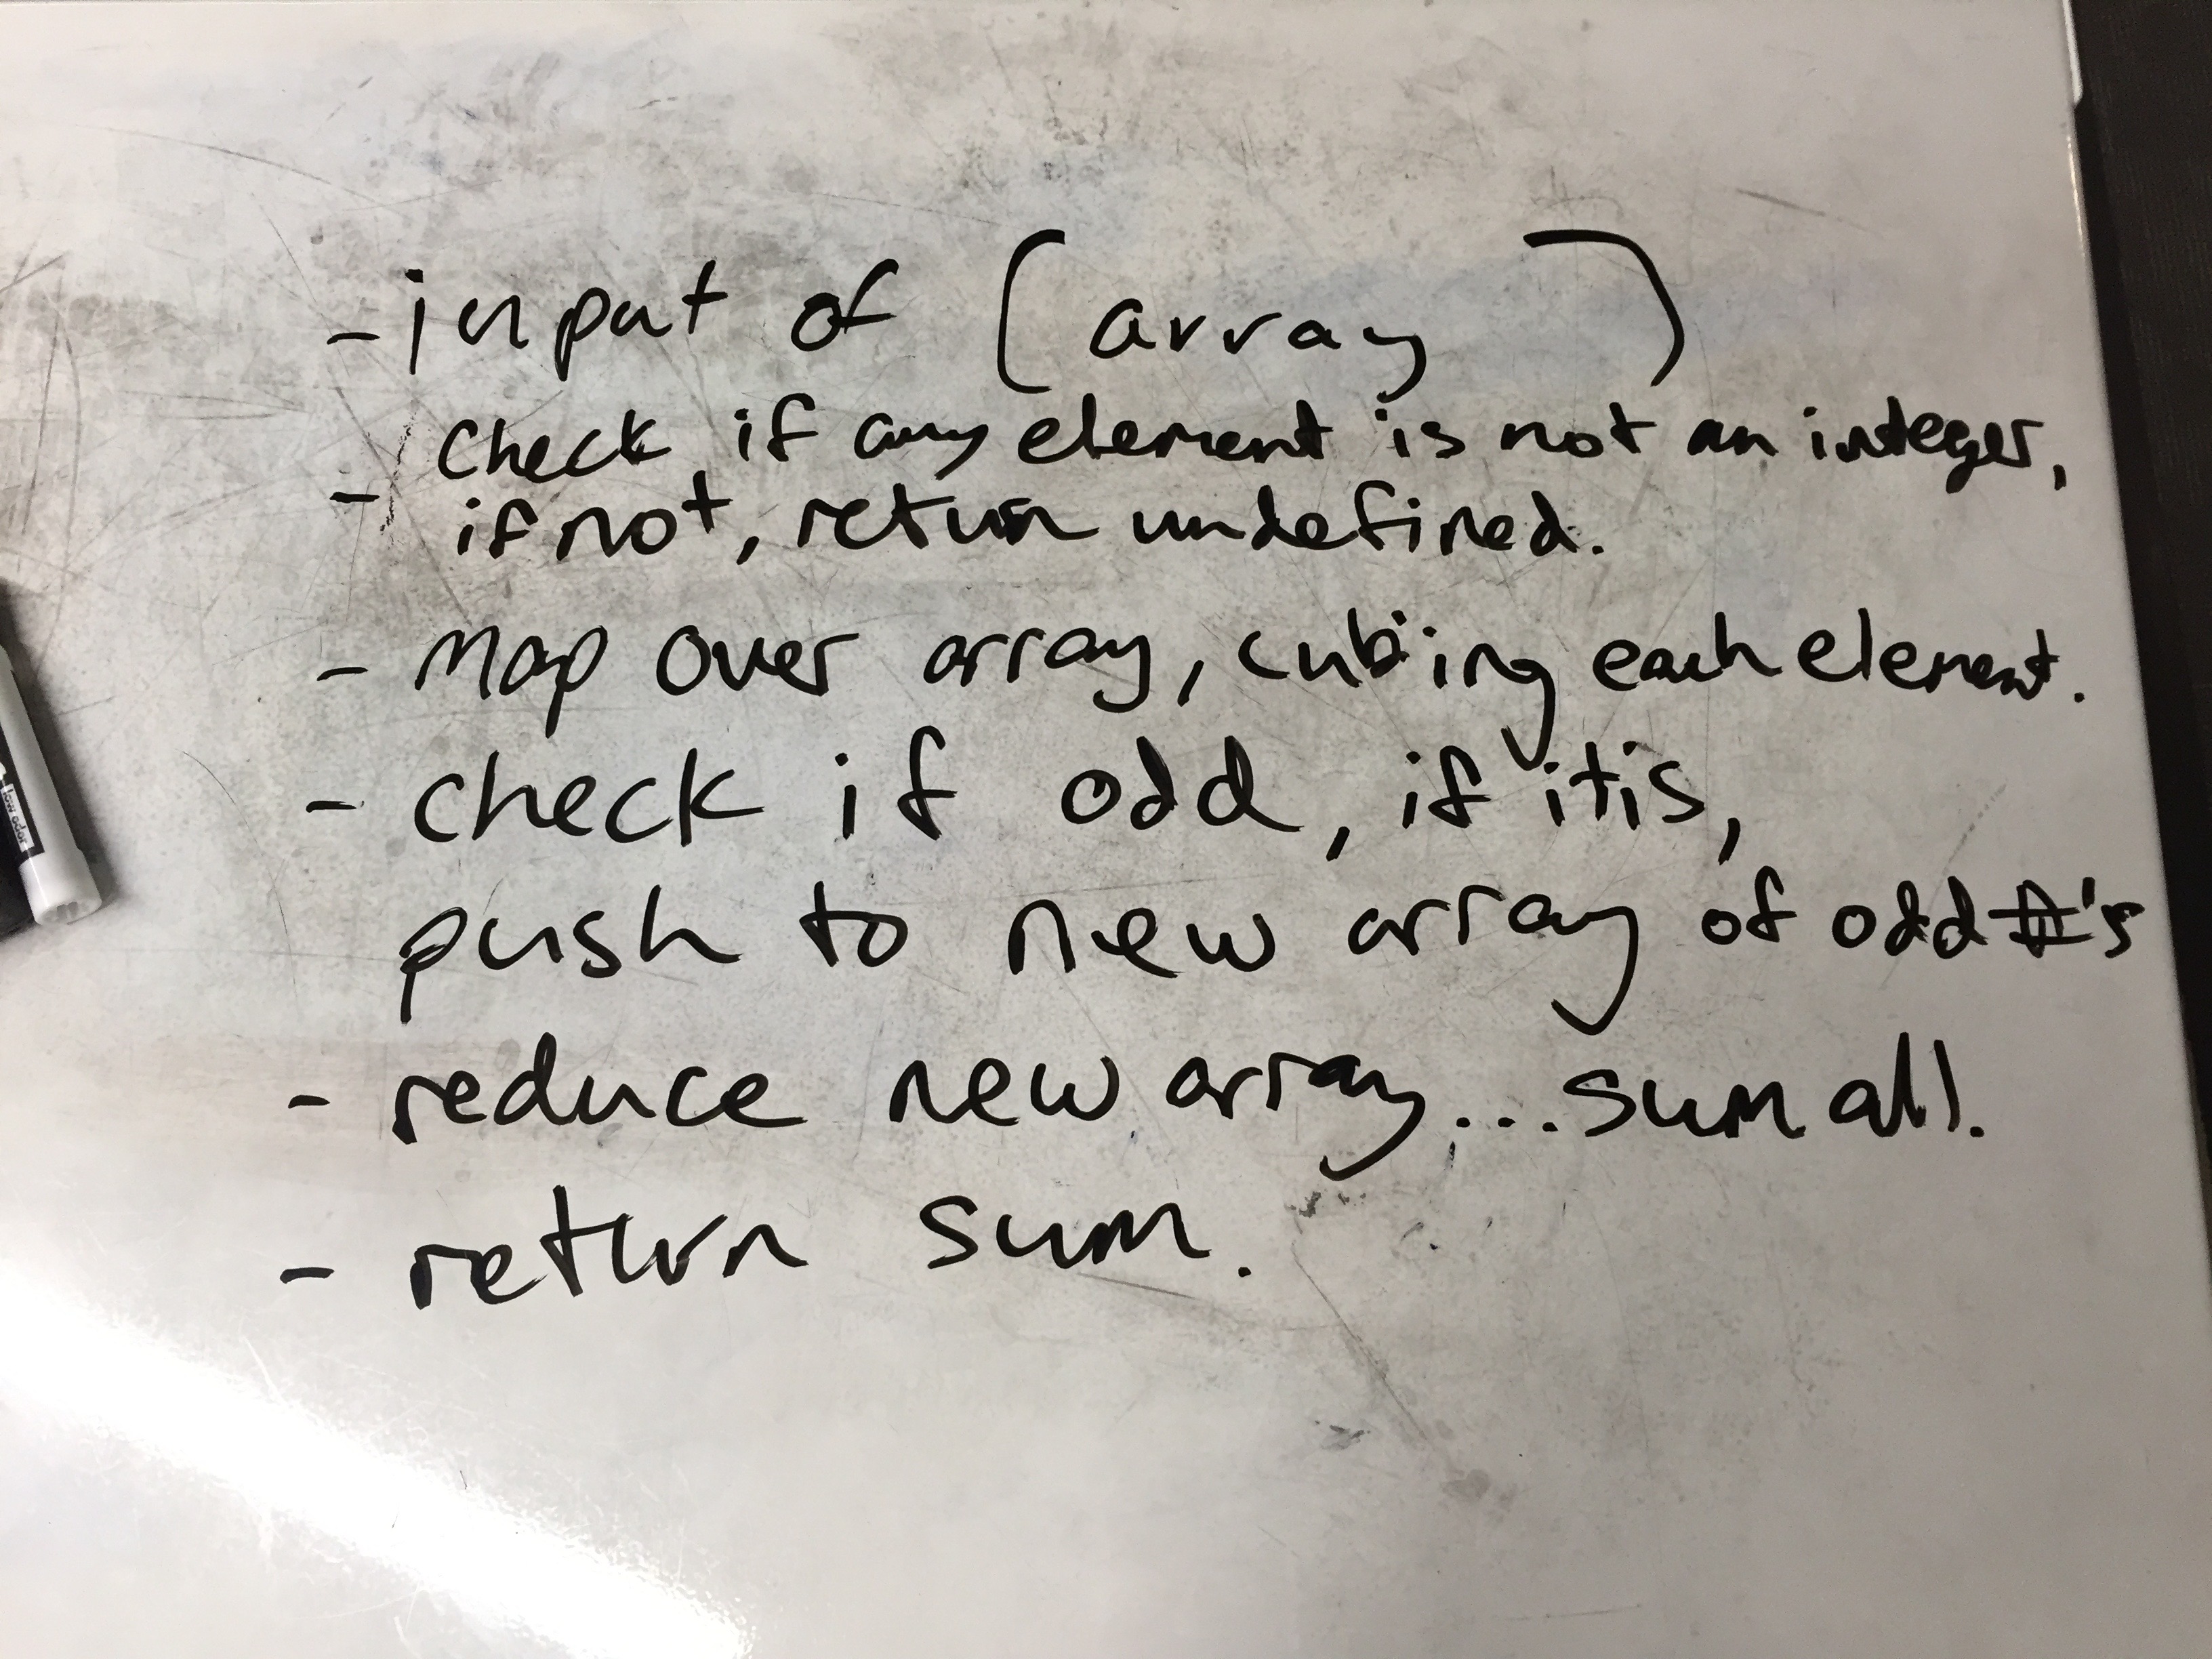 - input of (array)
- check if any element is not an integer,
if not, return undefined.
- Map over array, cubing each element.
- check if odd, if it is,
push to new array of odd #'s
- reduce new array...sum all.
- return sum.
low odor